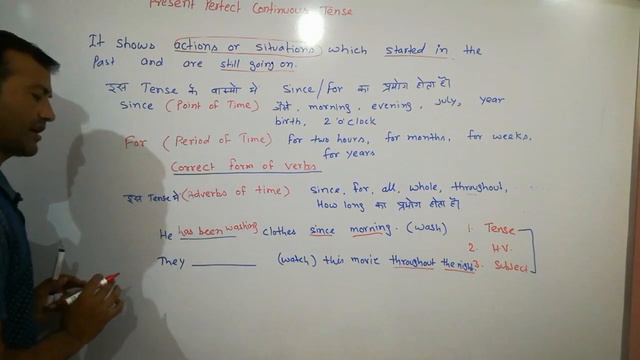 Present Perfect Continuous Tense
It shows actions or situations which started in the
Past and are still going on.
इस Tense के वाक्यो मे Since/for का प्रयोग होता है।
Since (Point of Time) जैसे, morning, evening, July, year
birth, 2 'o'clock
For (Period of Time) for two hours, for months, for weeks.
for years
Correct form of verbs
इस Tense मे (Adverbs of time) Since, for, all, whole, throughout,
How long का प्रयोग होता है।
He has been washing clothes since morning. (wash) 1. Tense
2. H.V.
They ________ (watch) this movie throughout the night. 3. Subject